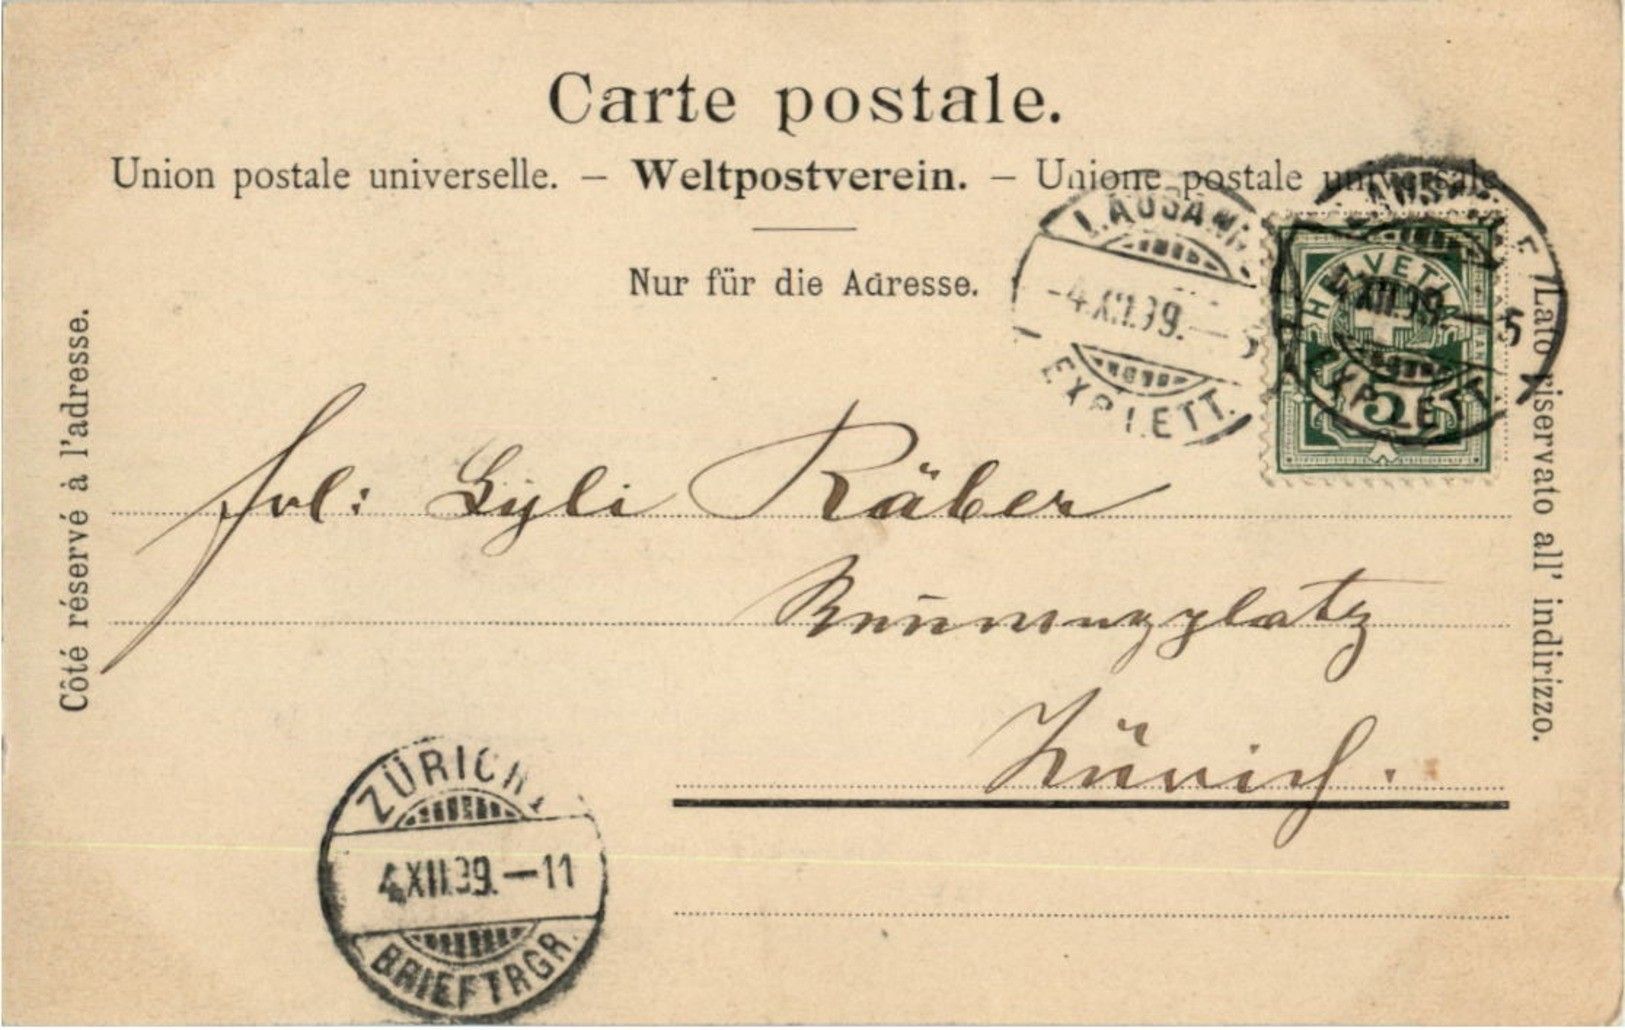 Carte postale.
Union postale universelle. – Weltpostverein. – Unione postale universale
Nur für die Adresse.
Côté réservé à l'adresse.
Lato riservato all' indirizzo.
LAUSANNE
4.XII.99.—5
EXP. LETT.
HELVETIA
5
LAUSANNE
4.XII.99.—5
EXP. LETT.
frl: Lyli Räber
platz
Zürich.
ZÜRICH
4.XII.99.—11
BRIEFTRGR.